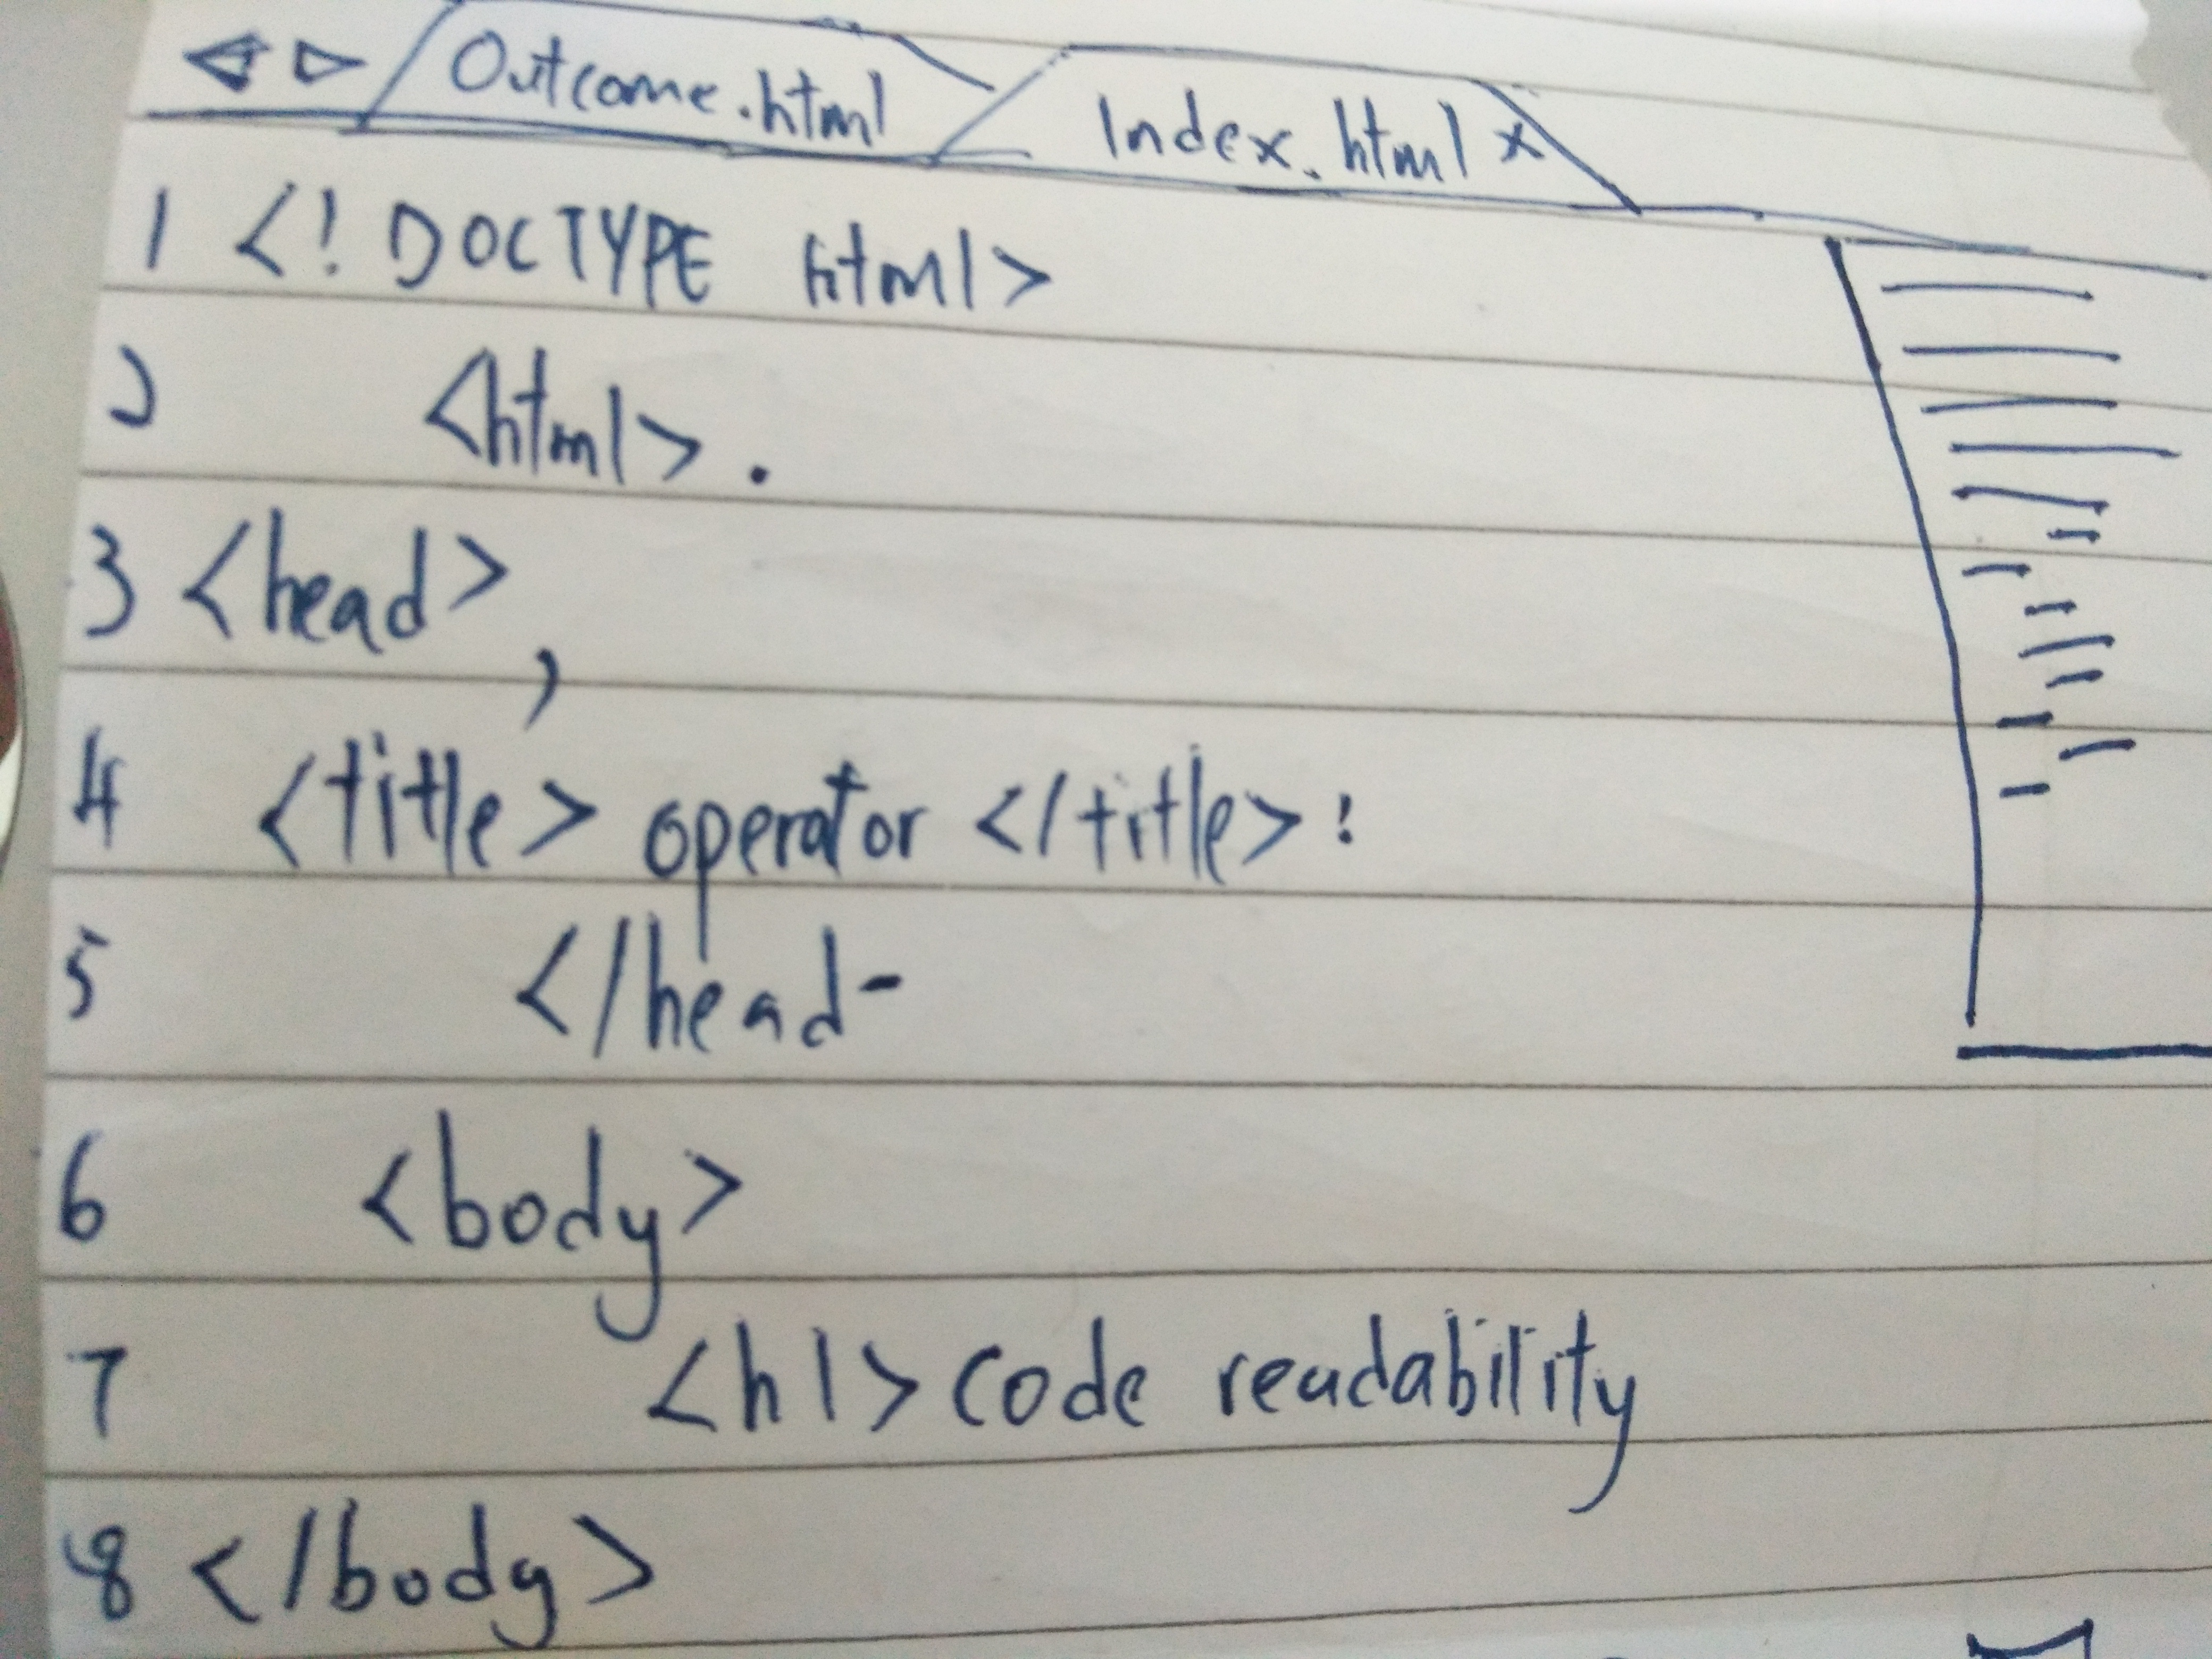 Outcome.html Index.html x
1 <! DOCTYPE html>
2 <html>.
3 <head>,
4 <title> operator </title>:
5 </head-
6 <body>
7 <h1> code readability
8 </body>